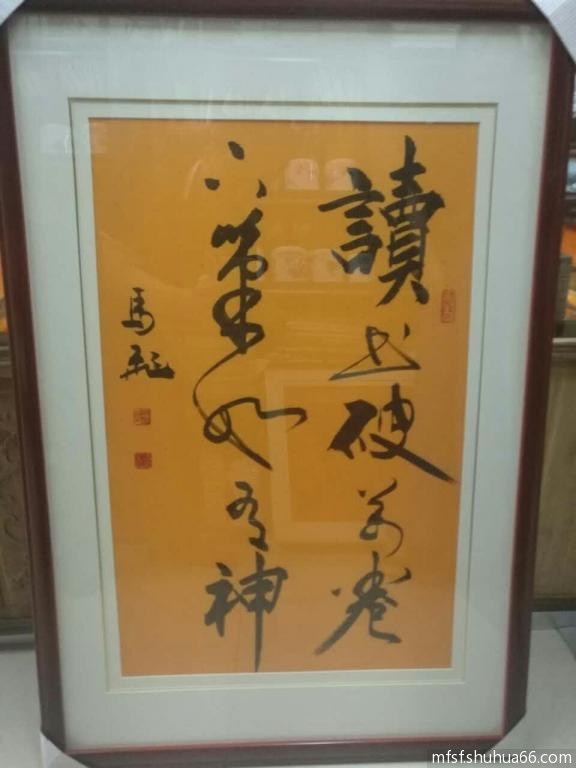 讀书破万卷
下筆如有神
马飞
mfsfshuhua66.com